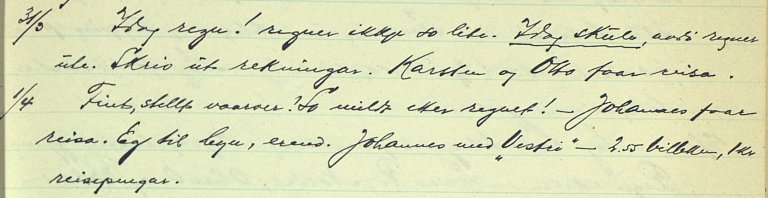 31/3 Idag regn! regner ikkje so lite. Idag skule, avdi regner
ute. Skriv ut rekningar. Karsten og Otto faar reisa.
1/4 Fint, stillt vaarver! So mildt etter regnet! – Johannes faar
reisa. Eg til byn, erend. Johannes med „Vestri" – 2.55 billetten, 1 kr
reisepengar.